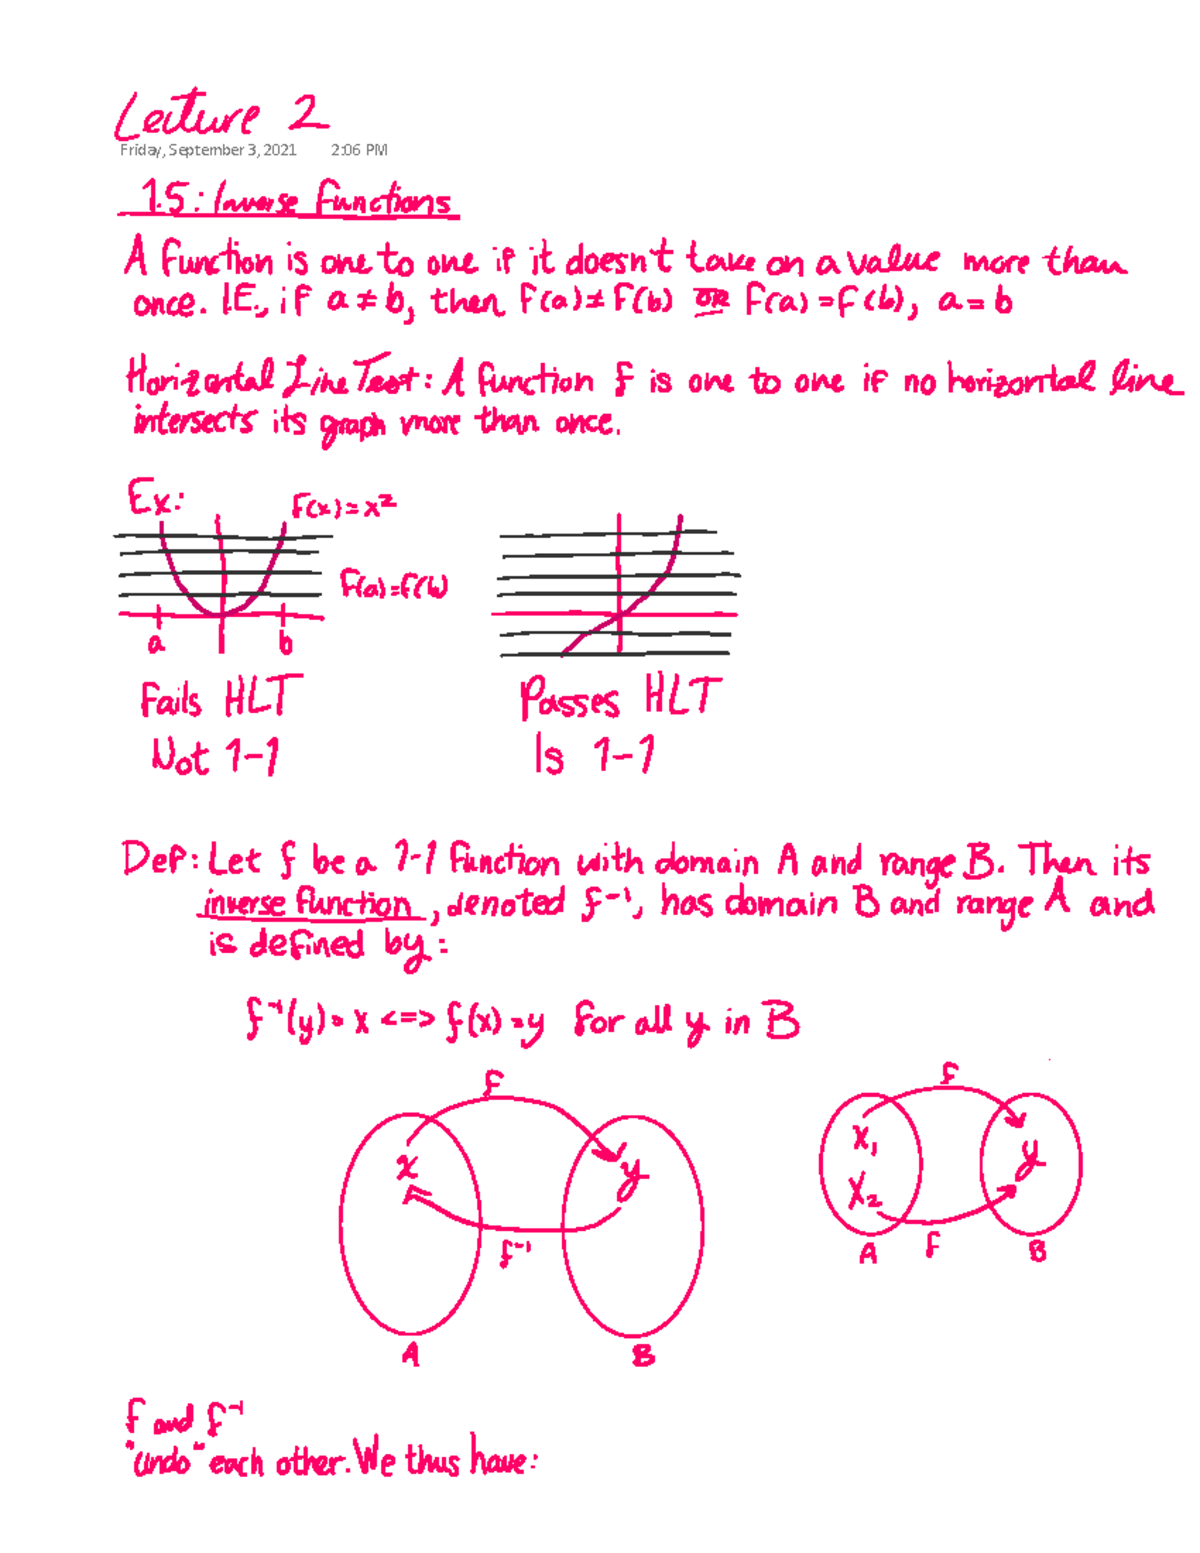 Lecture 2
Friday, September 3, 2021 2:06 PM
1.5: Inverse Functions
A function is one to one if it doesn't take on a value more than
once. I.E., if a ≠ b, then f(a) ≠ f(b) OR f(a) = f(b), a = b
Horizontal Line Test: A function f is one to one if no horizontal line
intersects its graph more than once.
Ex:
f(x) = x²
f(a) = f(b)
a b
Fails HLT
Not 1-1
Passes HLT
Is 1-1
Def: Let f be a 1-1 function with domain A and range B. Then its
inverse function, denoted f⁻¹, has domain B and range A and
is defined by:
f⁻¹(y) = x <=> f(x) = y for all y in B
f
x y
f⁻¹
A B
f
x₁
x₂
y
A f B
f and f⁻¹
"undo" each other. We thus have: